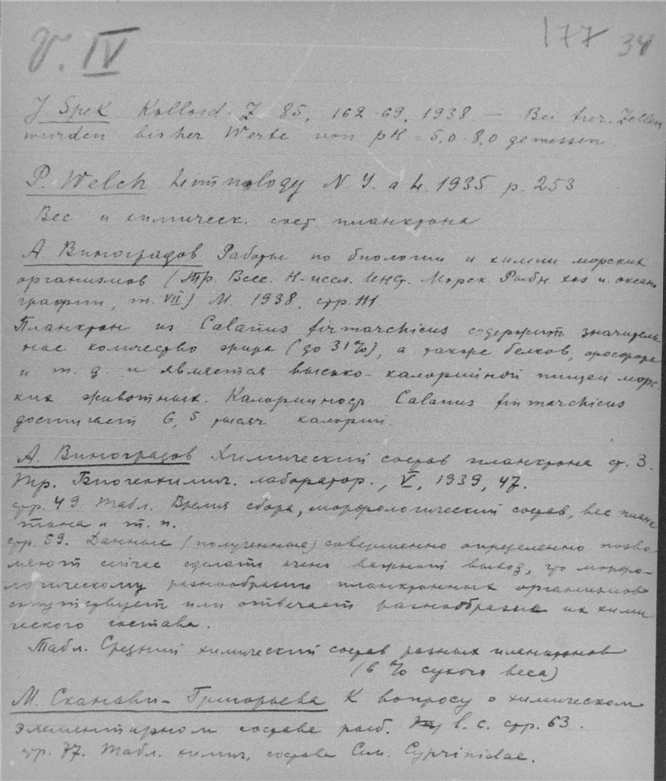 V. IV
177 34
J. Spek Kolloid. Z 85, 162-69, 1938 — Bei tier. Zellen
wurden bisher Werte von pH = 5,0-8,0 gemessen
P. Welch Limnology N Y. a L. 1935 p. 253
Вес и химическ. сост планктона
А Виноградов Работы по биологии и химии морских
организмов (Тр. Всес. Н-иссл. Инст. Морск. Рыбн хоз и океано
графии, т. VII) М. 1938, стр. 111
Планктон из Calanus finmarchicus содержит значитель
ное количество жира (до 31%), а также белков, фосфора
и т. д. и является высоко-калорийной пищей морс
ких животных. Калорийность Calanus finmarchicus
достигает 6,5 тысяч калорий.
А. Виноградов Химический состав планктона ст. 3.
Тр. Биогеохимич. лаборатор., V, 1939, 47.
стр. 49. Табл. Время сбора, морфологический состав, вес планк
тона и т. п.
стр. 59. Данные (полученные) совершенно определенно позво
ляют сейчас сделать очень важный вывод, что морфо-
логическому разнообразию планктонных организмов
сопутствует или отвечает разнообразие их хими
ческого состава.
Табл. Средний химический состав разных планктонов
(в % сухого веса)
М. Сканави-Григорьева К вопросу о химическом
элементарном составе рыб. в. с. стр. 63.
стр. 77. Табл. химич. состава Сем. Cyprinidae.